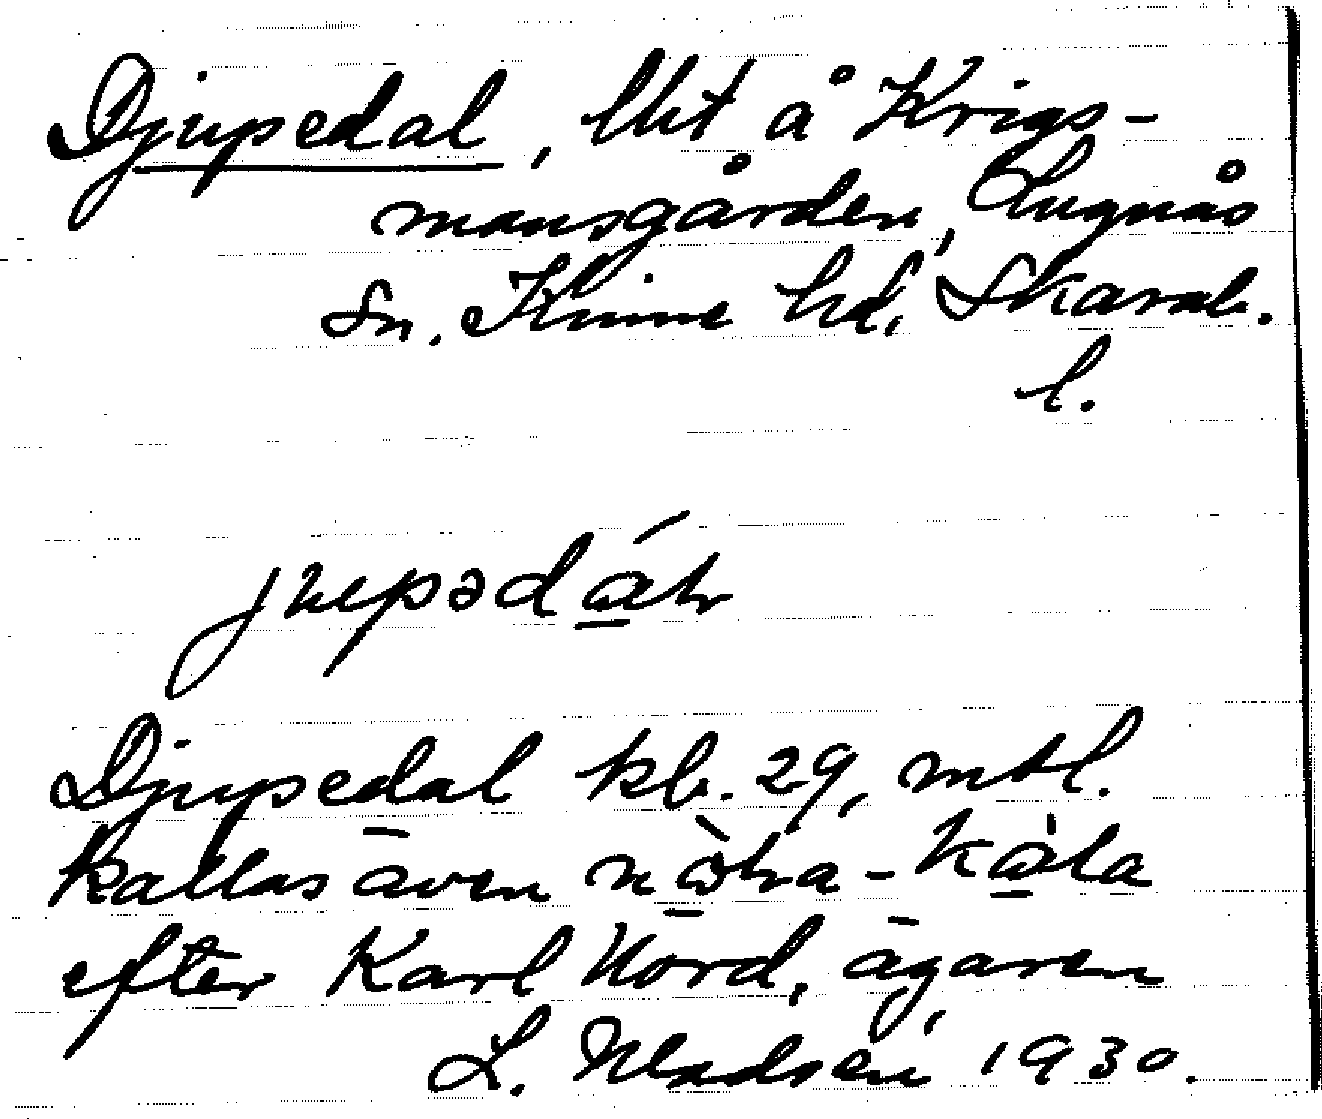 Djupedal, lht å Krigs-
mansgården, Lugnås
sn. Kinne hd, Skarab.
l.
Djupedal kb. 29, mtl.
kallas även
efter Karl Nord, ägaren
L. Madsén 1930.